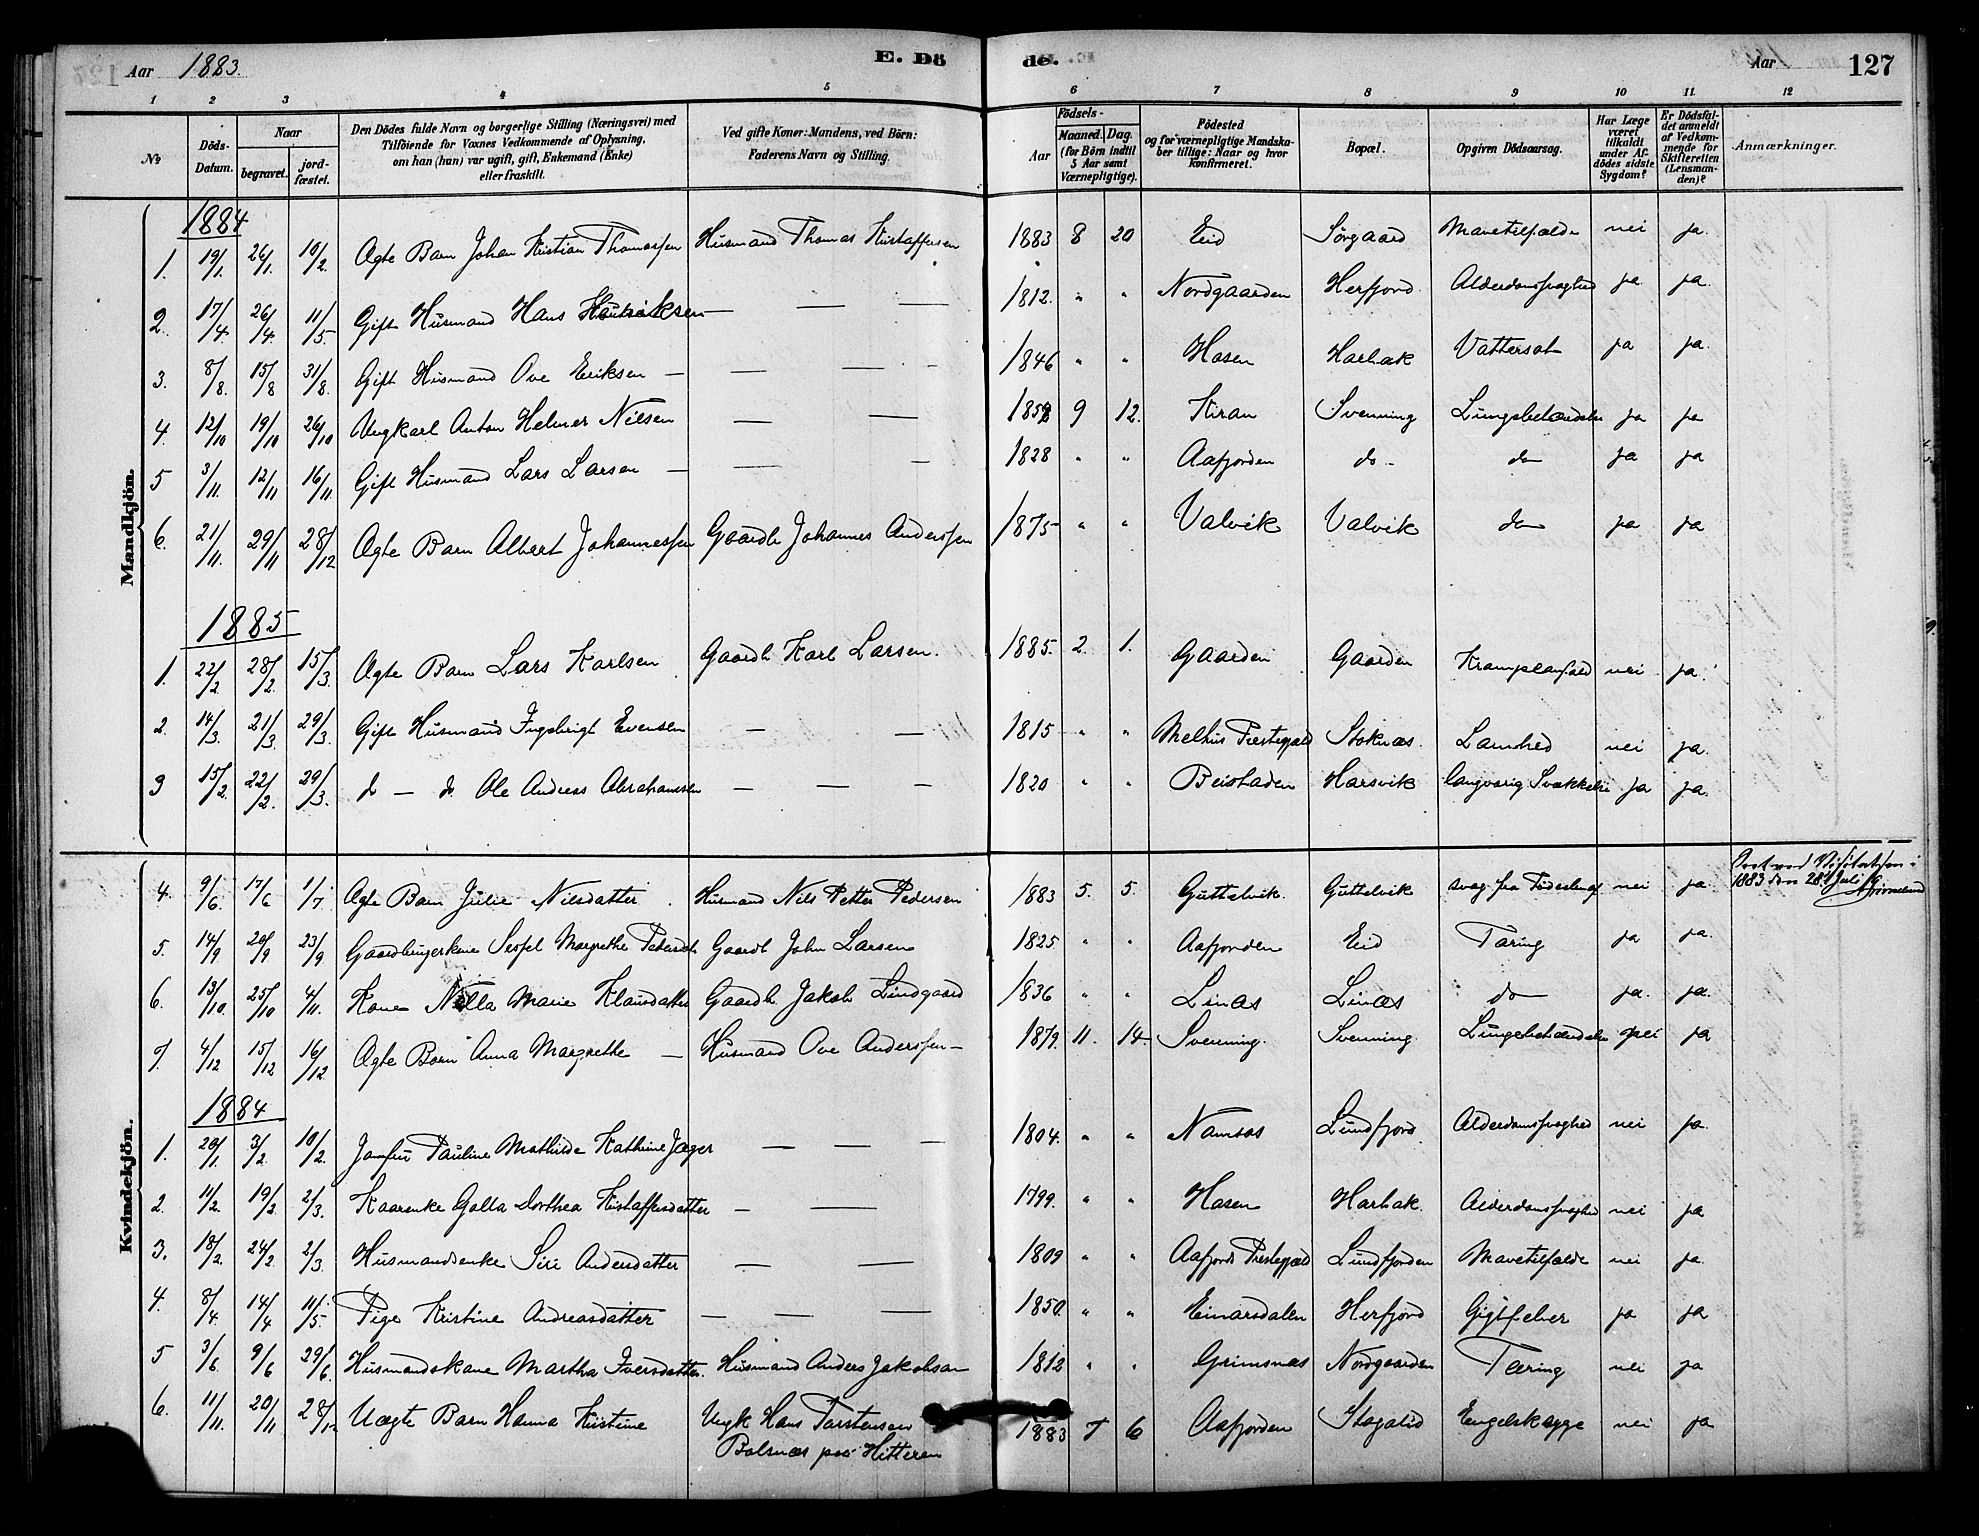 Aar 1883. E. Dö de. Aar 127
1 2 3 4 5 6 7 8 9 10 11 12
№ Döds-Datum. Naar begravet. jord-fæstet. Den Dödes fulde Navn og borgerlige Stilling (Næringsvei) med Tilföiende for Voxnes Vedkommende af Oplysning, om han (hun) var ugift, gift, Enkemand (Enke) eller fraskilt. Ved gifte Koner: Mandens, ved Börn: Faderens Navn og Stilling. Födsels- Aar Maaned. Dag. (for Börn indtil 5 Aar samt Værnepligtige). Födested og for værnepligtige Mandskaber tillige: Naar og hvor konfirmeret. Bopæl. Opgiven Dödsaarsag. Har Læge været tilkaldt under Afdödes sidste Sygdom? Er Dödsfaldet anmeldt af Vedkommende for Skifteretten (Lensmanden)? Anmærkninger.
Mandkjön.
1884
1. 19/1. 26/1. 10/2. Ægte Barn Johan Kristian Thomassen Husmand Thomas Kristoffersen 1883 8 20 Eid Sörgaard Mavetilfælde nei ja.
2. 17/4. 26/4. 11/5. Gift Husmand Hans Henriksen — — — 1812. " " Nordgaarden Herfjord. Alderdomssvaghed ja ja.
3. 8/8. 15/8 31/8. Gift Husmand Ove Eriksen — — — - 1846 " " Hasen Harbak Vattersot ja ja.
4. 12/10 19/10 26/10 Ungkarl Anton Helmer Nilsen — — 1858 9 12. Kiran Svenning Lungebetændelse ja ja
5 3/11. 12/11 16/11. Gift Husmand Lars Larsen — — - 1828 " " Aafjorden do - do ja ja
6. 21/11. 29/11 28/12 Ægte Barn Albert Johannessen Gaardb Johannes Anderssen 1875 " " Valvik Valvik do ja ja
1885
1. 22/2 28/2. 15/3. Ægte Barn Lars Karlsen Gaardb Karl Larsen. 1885. 2. 1. Gaarden Gaarden Krampeanfald nei ja.
2. 14/3. 21/3. 29/3. Gift Husmand Ingebrigt Evensen — — 1815 " " Melhus Prestegjæld Stoknæs. Lamhed nei ja.
3 15/2. 22/2. 29/3. do — do Ole Andreas Abrahamsen — — - 1820 " " Beistaden Harsvik langvarig Svækkelse ja ja.
Kvindekjön.
4. 9/6. 17/6 1/7 Ægte Barn Julie Nilsdatter Husmand Nils Petter Pedersen 1883 5. 5. Guttelvik Guttelvik svag fra Födselen af nei ja. 1883 den 28de Juli
5. 14/9 20/9. 23/9 Gaardbrugerkone Sessel Margrethe Pedersdt Gaardb John Larsen 1825. " " Aafjorden Eid Tæring ja ja.
6. 13/10. 25/10 4/11. Kone Nilla Marie Klausdatter Gaardb Jakob Lindgaard 1836 " " Linæs Linæs do ja. ja.
7. 4/12 15/12 16/12. Ægte Barn Anna Margrethe — Husmand Ove Anderssen — 1879. 11. 14 Svenning. Svenning. Lungebetændelse nei ja
1884
1. 20/1. 3/2. 10/2. Jomfru Pauline Mathilde Kathrine Jæger — — - 1804. " " Namsos Lundfjord. Alderdomssvaghed nei ja.
2. 11/2. 19/2 2/3. Kaarenke Golla Dorthea Kristoffersdatter - — 1799. " " Hasen Harbak. Alderdomssvaghed nei ja
3. 18/2. 24/2 2/3. Husmandsenke Siri Andersdatter — — 1809 " " Aafjords Prestegjæld Lundfjorden Mavetilfælde nei ja.
4. 8/4. 14/4 11/5. Pige Kristine Andreasdatter — — — 1850. " " Einarsdalen Herfjord Gigtfeber ja ja
5 3/6. 9/6 29/6. Husmandskone Martha Iversdatter. Husmand Anders Jakobsen 1812 " " Grimsnæs Nordgaarden Tæring nei ja
6. 11/11. 20/11 28/12 Uægte Barn Hanna Kristine Ungk Hans Torstensen 1883 7 6 Aafjorden Engelskesyge nei ja
Balsnæs paa Hitteren